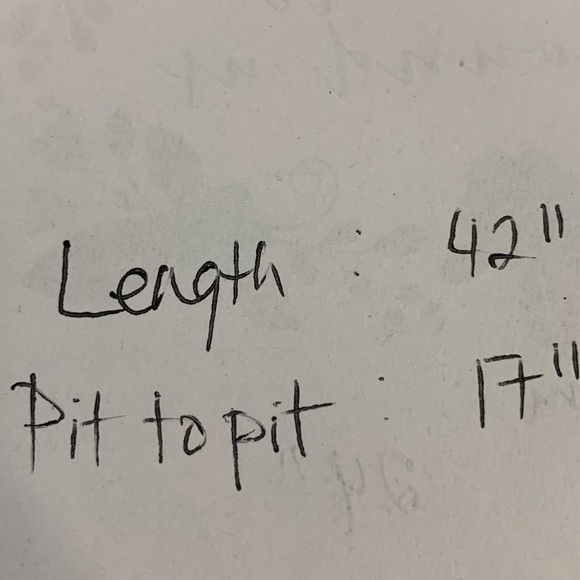 Length : 42"
Pit to pit : 17"